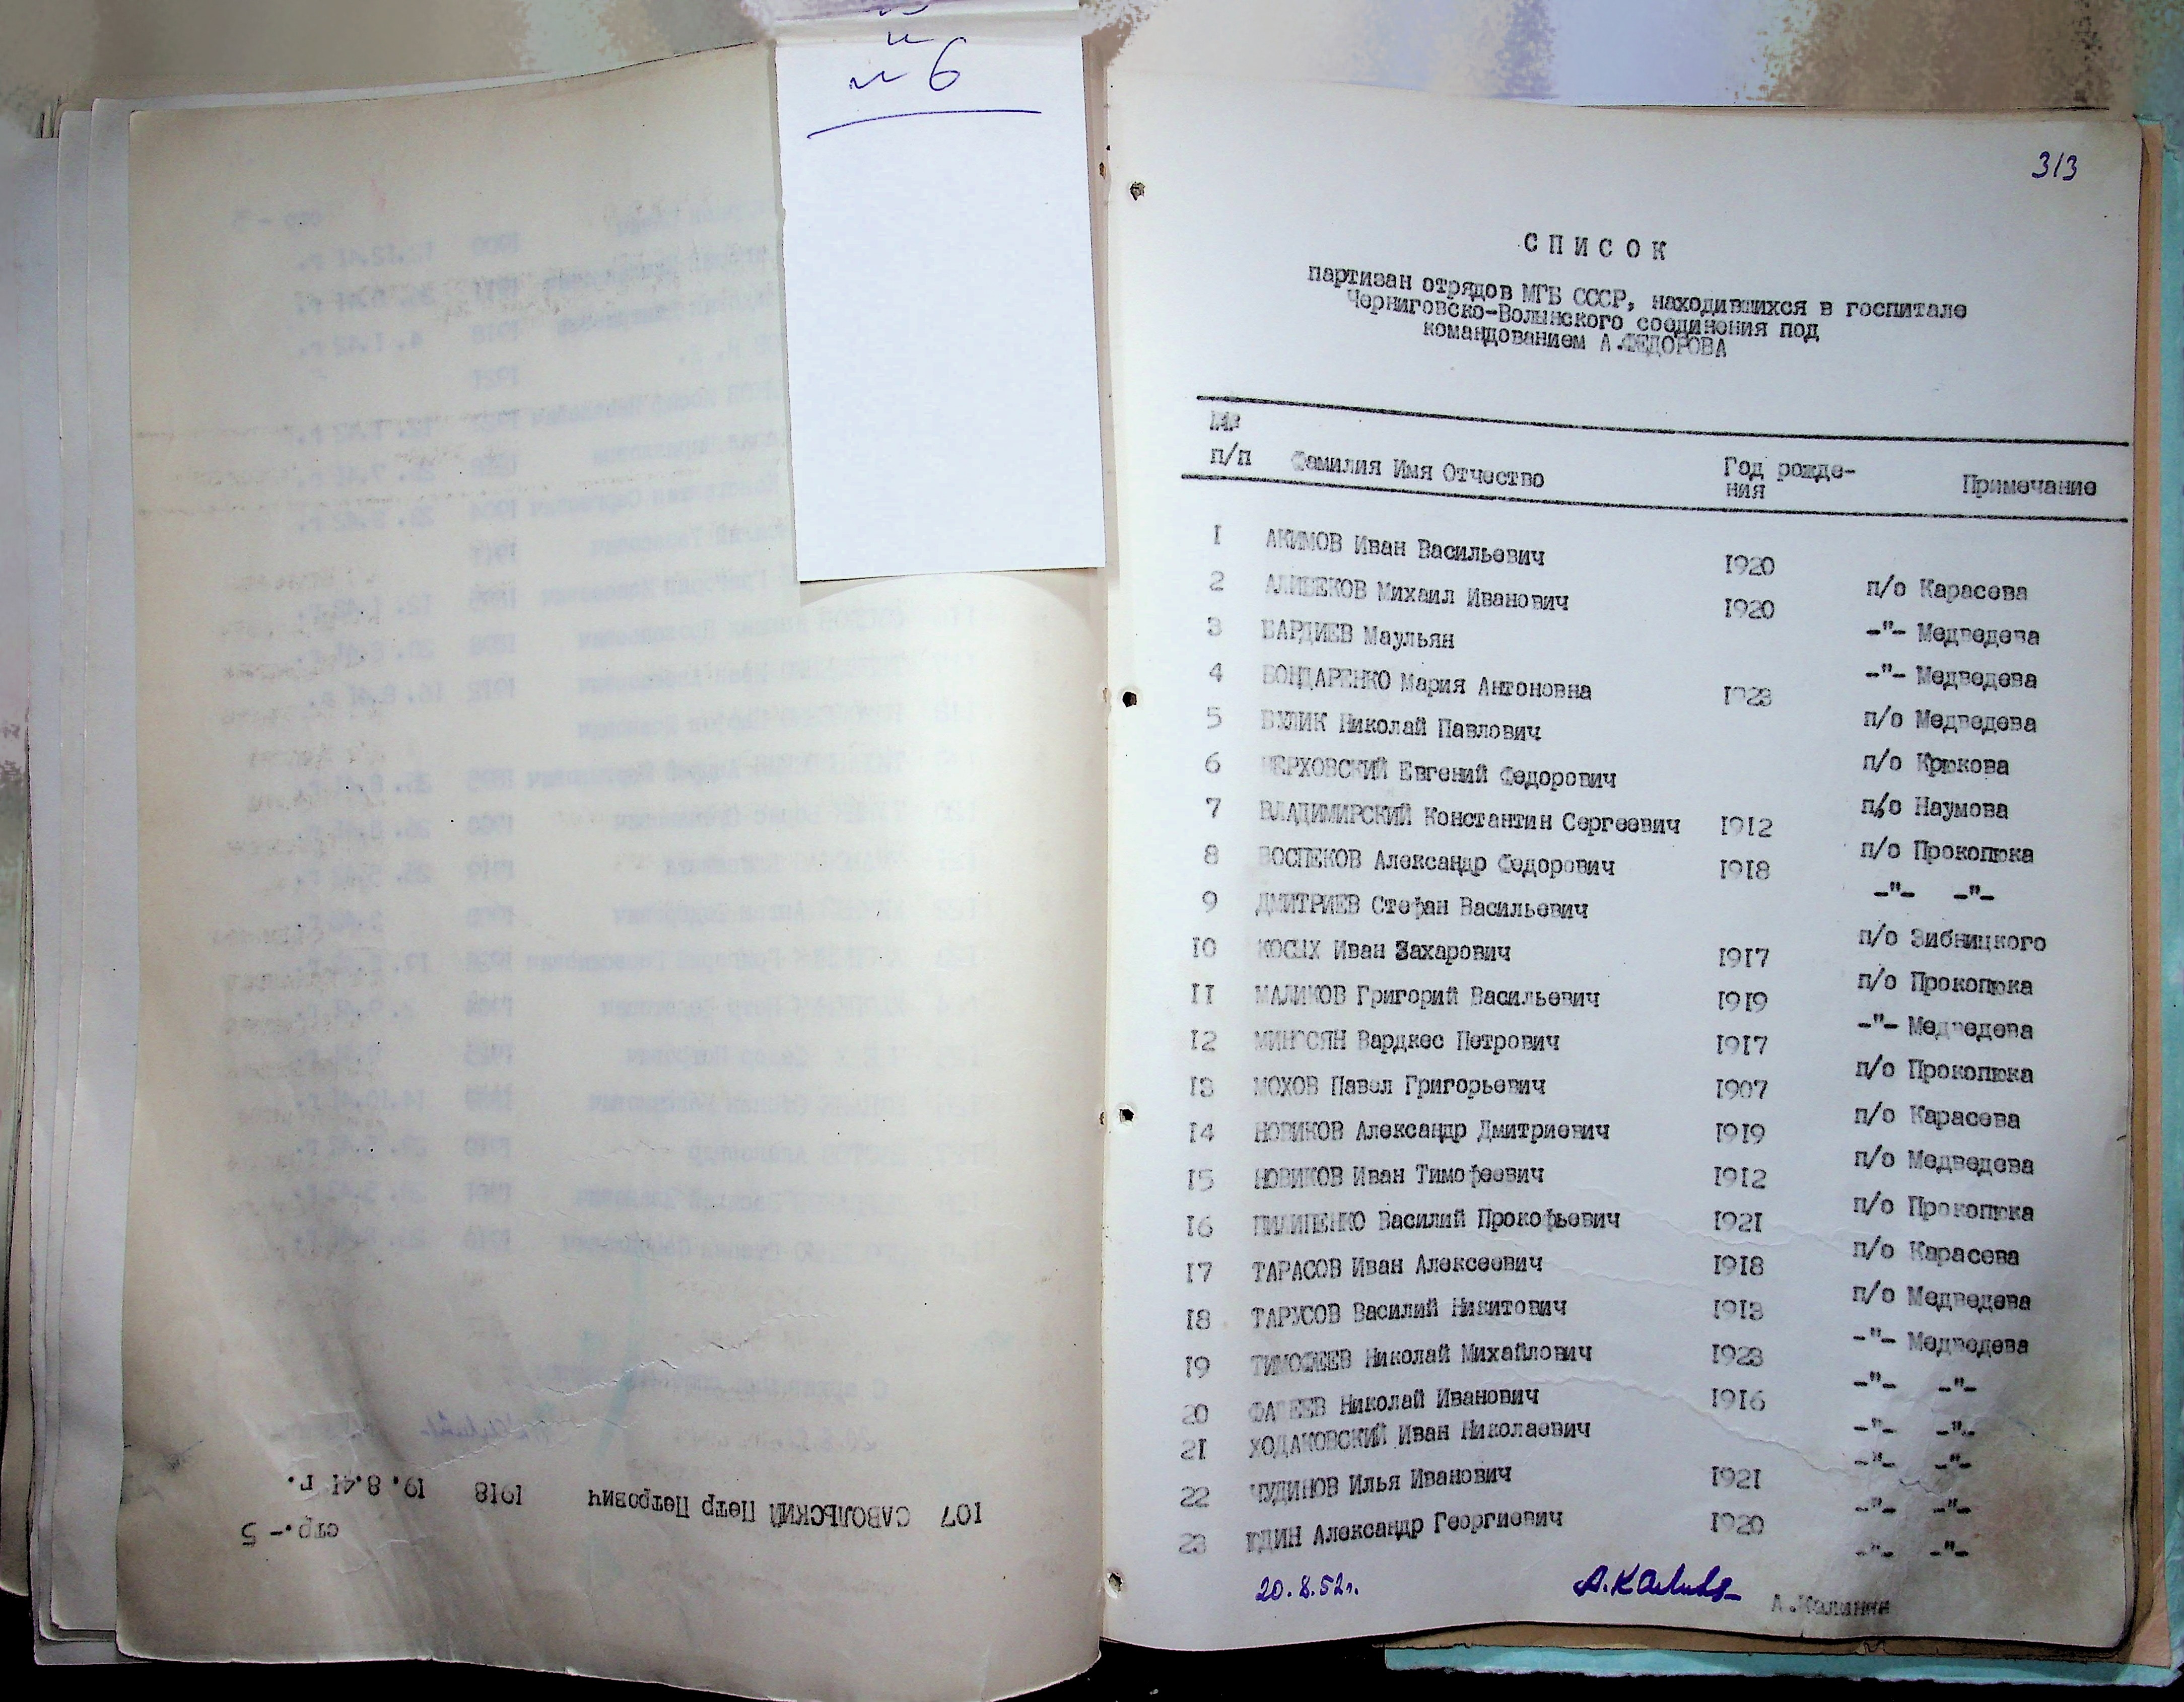 № 6
313
СПИСОК
партизан отрядов МГБ СССР, находившихся в госпитале
Черниговско-Волынского соединения под
командованием А.ФЕДОРОВА
№№
п/п Фамилия Имя Отчество Год рожде- Примечание
ния
1 АКИМОВ Иван Васильевич 1920 п/о Карасева
2 АЛИБЕКОВ Михаил Иванович 1920 -"- Медведева
3 БАРДИЕВ Маульян -"- Медведева
4 БОНДАРЕНКО Мария Антоновна 1923 п/о Медведева
5 БУЛИК Николай Павлович п/о Крюкова
6 ВЕРХОВСКИЙ Евгений Федорович п/о Наумова
7 ВЛАДИМИРСКИЙ Константин Сергеевич 1912 п/о Прокопюка
8 ВОСПЕКОВ Александр Федорович 1918 -"- -"-
9 ДМИТРИЕВ Стефан Васильевич п/о Зибницкого
10 КОСЫХ Иван Захарович 1917 п/о Прокопюка
11 МАЛИКОВ Григорий Васильевич 1919 -"- Медведева
12 Вардкес Петрович 1917 п/о Прокопюка
13 МОХОВ Павел Григорьевич 1907 п/о Карасева
14 НОВИКОВ Александр Дмитриевич 1919 п/о Медведева
15 НОВИКОВ Иван Тимофеевич 1912 п/о Прокопюка
16 ПИЛИПЕНКО Василий Прокофьевич 1921 п/о Карасева
17 ТАРАСОВ Иван Алексеевич 1918 п/о Медведева
18 ТАРУСОВ Василий Никитович 1913 -"- Медведева
19 ТИМОФЕЕВ Николай Михайлович 1923 -"- -"-
20 ФАДЕЕВ Николай Иванович 1916 -"- -"-
21 ХОДАКОВСКИЙ Иван Николаевич -"- -"-
22 ЧУДИНОВ Илья Иванович 1921 -"- -"-
23 ЮДИН Александр Георгиевич 1920 -"- -"-
20.8.52г. А.Калинин
А.Калинин
стр.-5
107 САВОЛЬСКИЙ Петр Петрович 1918 19.8.41 г.